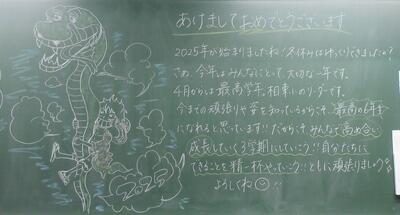 あけましておめでとうございます
2025年が始まりましたね!冬休みはゆっくりできましたか?
さぁ、今年はみんなにとって、大切な一年です。
4月からは最高学年、相東小のリーダーです。
今までの頑張りや姿を知っているからこそ、最高の6年生
になれると思っています!!だからこそ、みんなで高め合い
成長していく3学期にしていこう!!自分たちに
できることを精一杯やっていこう!!ともに頑張りましょう
よろしくね!!
2025